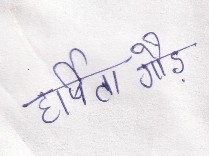 हर्षिता गौड़